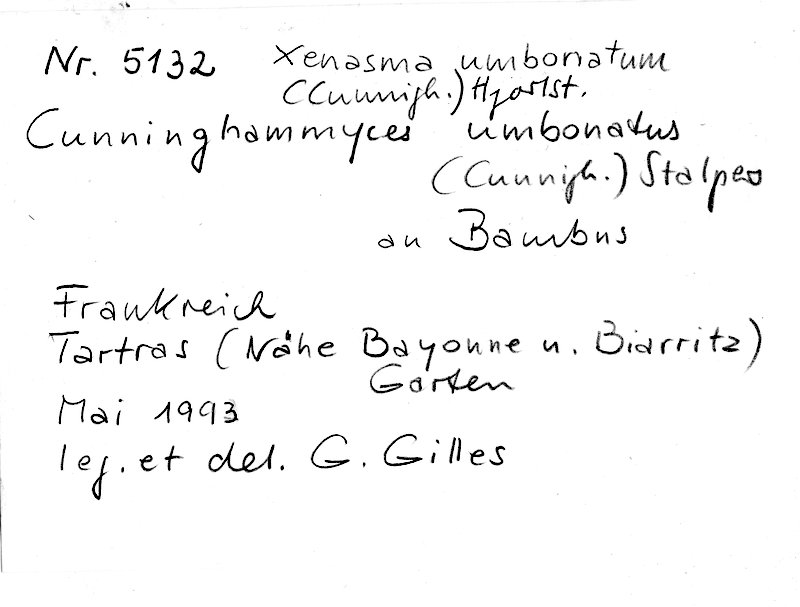 Nr. 5132 Xenasma umbonatum
(Cunnigh.) Hjortst.
Cunninghammyces umbonatus
(Cunnigh.) Stalpers
an Bambus
Frankreich
Tartras (Nähe Bayonne u. Biarritz)
Garten
Mai 1993
leg. et det. G. Gilles